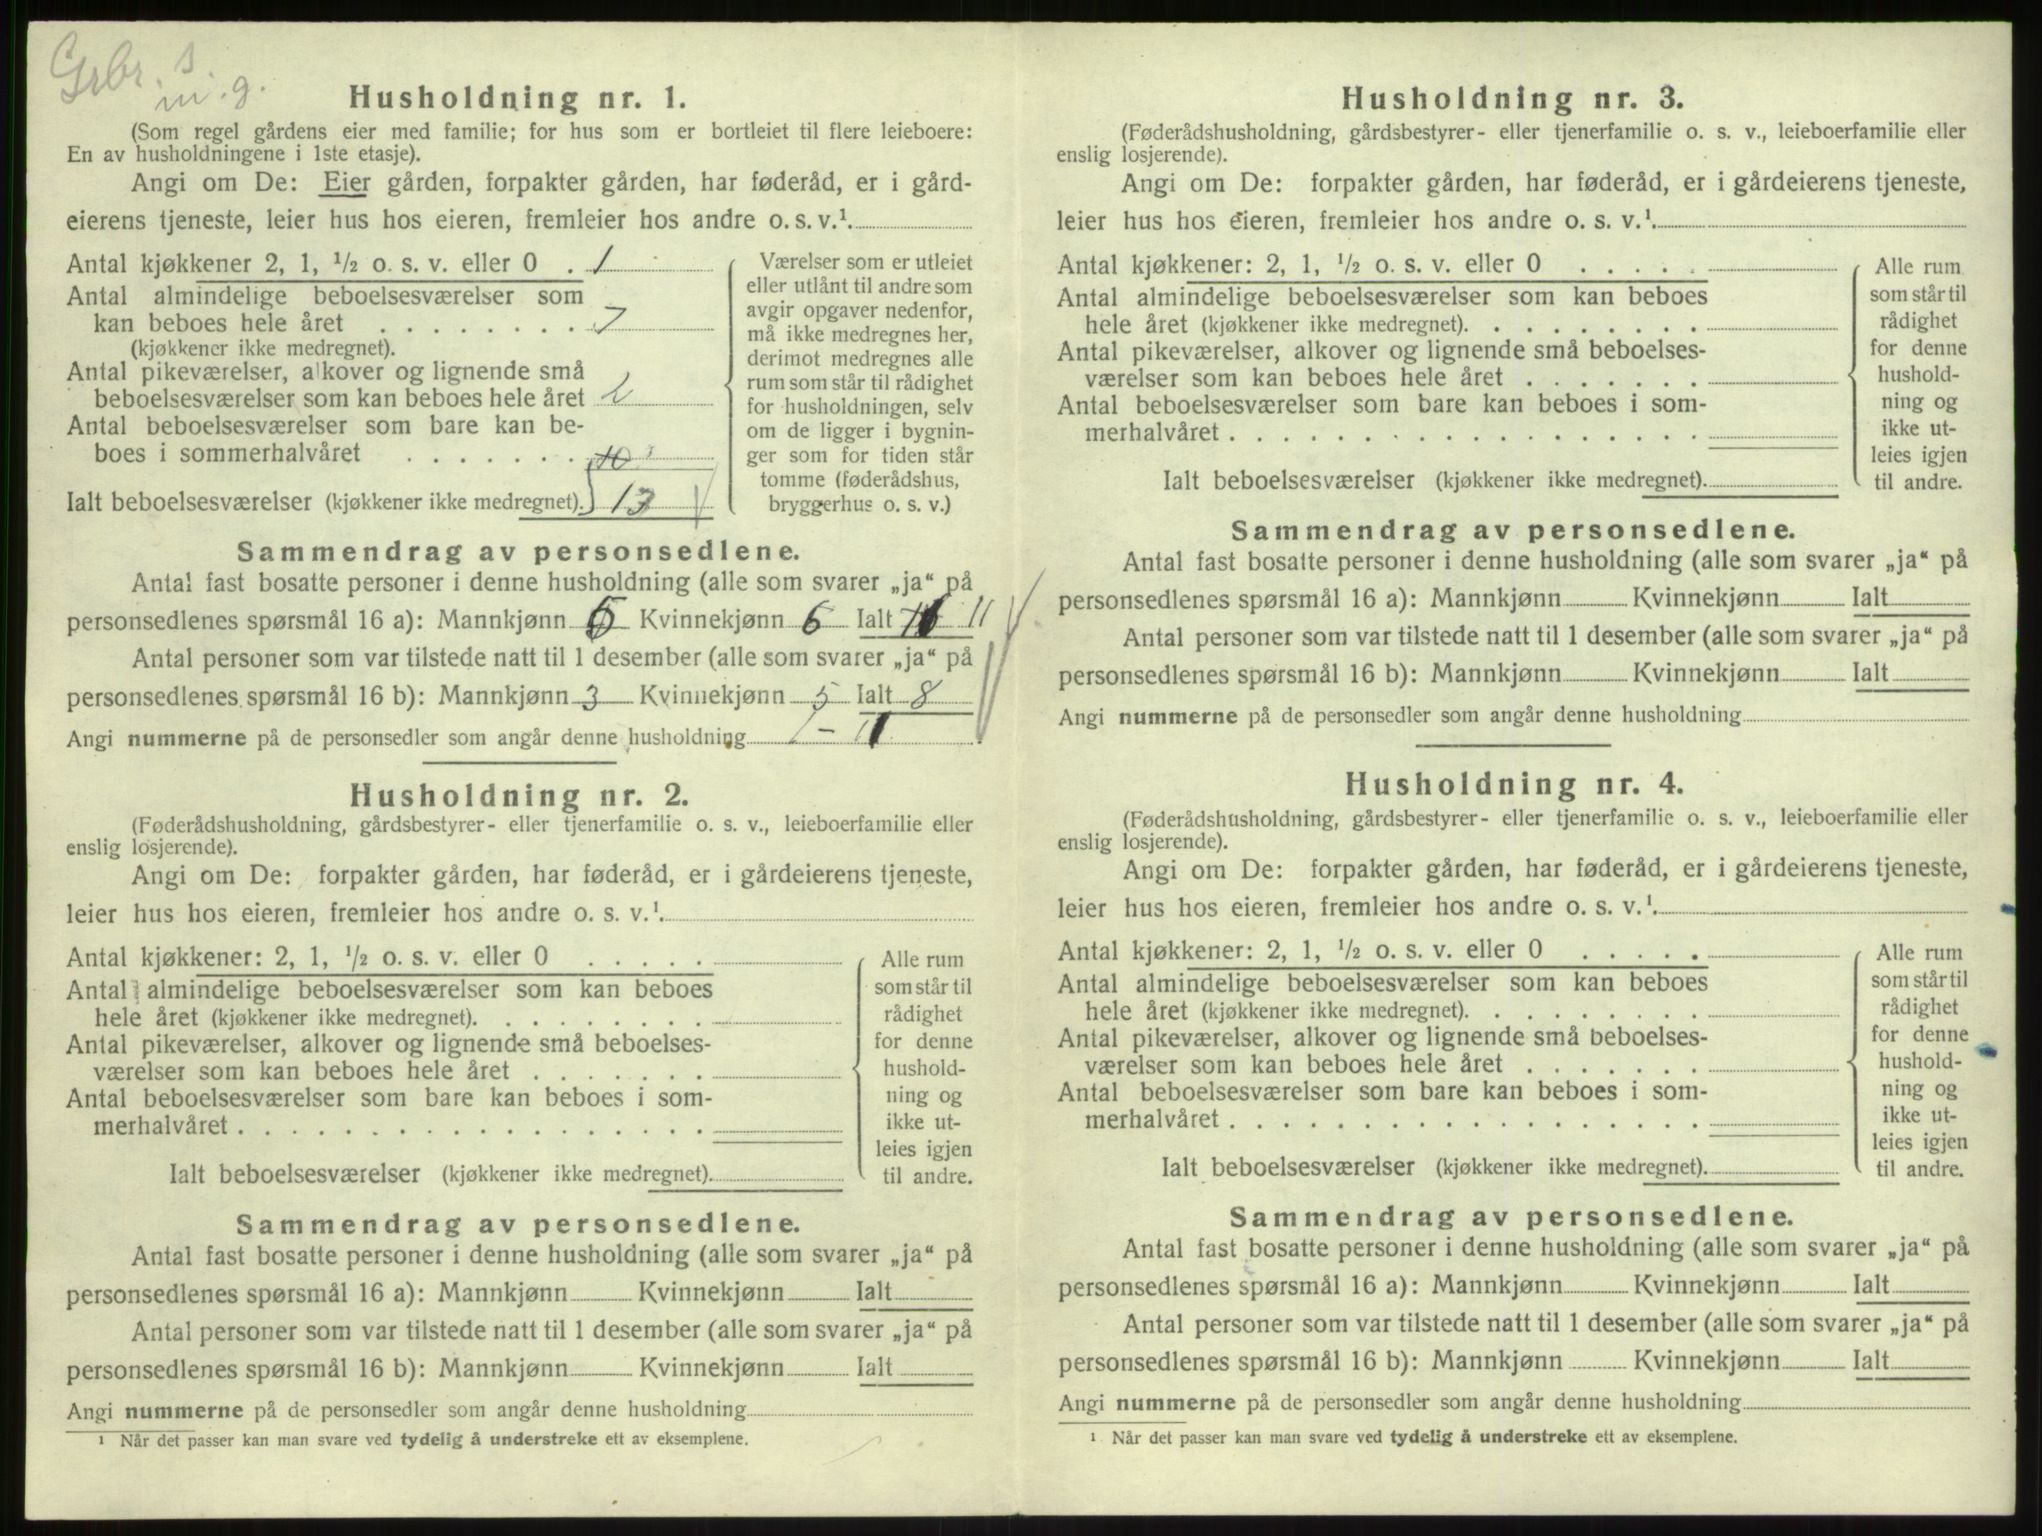 Grbr. s.
m. g.
Husholdning nr. 1.
(Som regel gårdens eier med familie; for hus som er bortleiet til flere leieboere:
En av husholdningene i 1ste etasje).
Angi om De: Eier gården, forpakter gården, har føderåd, er i gård-
eierens tjeneste, leier hus hos eieren, fremleier hos andre o. s. v.¹.
Antal kjøkkener 2, 1, ½ o. s. v. eller 0 . 1
Antal almindelige beboelsesværelser som
kan beboes hele året . . . . . . . . 7
(kjøkkener ikke medregnet).
Antal pikeværelser, alkover og lignende små
beboelsesværelser som kan beboes hele året 2
Antal beboelsesværelser som bare kan be-
boes i sommerhalvåret . . . . . . . 10
Ialt beboelsesværelser (kjøkkener ikke medregnet). 13
Værelser som er utleiet
eller utlånt til andre som
avgir opgaver nedenfor,
må ikke medregnes her,
derimot medregnes alle
rum som står til rådighet
for husholdningen, selv
om de ligger i bygnin-
ger som for tiden står
tomme (føderådshus,
bryggerhus o. s. v.)
Sammendrag av personsedlene.
Antal fast bosatte personer i denne husholdning (alle som svarer „ja“ på
personsedlenes spørsmål 16 a): Mannkjønn 5 Kvinnekjønn 6 Ialt 11
Antal personer som var tilstede natt til 1 desember (alle som svarer „ja“ på
personsedlenes spørsmål 16 b): Mannkjønn 3 Kvinnekjønn 5 Ialt 8
Angi nummerne på de personsedler som angår denne husholdning 1 – 11
Husholdning nr. 2.
(Føderådshusholdning, gårdsbestyrer- eller tjenerfamilie o. s. v., leieboerfamilie eller
enslig losjerende).
Angi om De: forpakter gården, har føderåd, er i gårdeierens tjeneste,
leier hus hos eieren, fremleier hos andre o. s. v.¹.
Antal kjøkkener: 2, 1, ½ o. s. v. eller 0 . . . . .
Antal almindelige beboelsesværelser som kan beboes
hele året (kjøkkener ikke medregnet). . . . . . . . .
Antal pikeværelser, alkover og lignende små beboelses-
værelser som kan beboes hele året . . . . . . .
Antal beboelsesværelser som bare kan beboes i som-
merhalvåret . . . . . . . . . . . . . . . . . .
Ialt beboelsesværelser (kjøkkener ikke medregnet).
Alle rum
som står til
rådighet
for denne
hushold-
ning og
ikke ut-
leies igjen
til andre.
Sammendrag av personsedlene.
Antal fast bosatte personer i denne husholdning (alle som svarer „ja“ på
personsedlenes spørsmål 16 a): Mannkjønn Kvinnekjønn Ialt
Antal personer som var tilstede natt til 1 desember (alle som svarer „ja“ på
personsedlenes spørsmål 16 b): Mannkjønn Kvinnekjønn Ialt
Angi nummerne på de personsedler som angår denne husholdning
¹ Når det passer kan man svare ved tydelig å understreke ett av eksemplene.
Husholdning nr. 3.
(Føderådshusholdning, gårdsbestyrer- eller tjenerfamilie o. s. v., leieboerfamilie eller
enslig losjerende).
Angi om De: forpakter gården, har føderåd, er i gårdeierens tjeneste,
leier hus hos eieren, fremleier hos andre o. s. v.¹.
Antal kjøkkener: 2, 1, ½ o. s. v. eller 0 . . . . .
Antal almindelige beboelsesværelser som kan beboes
hele året (kjøkkener ikke medregnet). . . . . . . . .
Antal pikeværelser, alkover og lignende små beboelses-
værelser som kan beboes hele året . . . . . . .
Antal beboelsesværelser som bare kan beboes i som-
merhalvåret . . . . . . . . . . . . . . . . . .
Ialt beboelsesværelser (kjøkkener ikke medregnet).
Alle rum
som står til
rådighet
for denne
hushold-
ning og
ikke ut-
leies igjen
til andre.
Sammendrag av personsedlene.
Antal fast bosatte personer i denne husholdning (alle som svarer „ja“ på
personsedlenes spørsmål 16 a): Mannkjønn Kvinnekjønn Ialt
Antal personer som var tilstede natt til 1 desember (alle som svarer „ja“ på
personsedlenes spørsmål 16 b): Mannkjønn Kvinnekjønn Ialt
Angi nummerne på de personsedler som angår denne husholdning
Husholdning nr. 4.
(Føderådshusholdning, gårdsbestyrer- eller tjenerfamilie o. s. v., leieboerfamilie eller
enslig losjerende).
Angi om De: forpakter gården, har føderåd, er i gårdeierens tjeneste,
leier hus hos eieren, fremleier hos andre o. s. v.¹.
Antal kjøkkener: 2, 1, ½ o. s. v. eller 0 . . . . .
Antal almindelige beboelsesværelser som kan beboes
hele året (kjøkkener ikke medregnet). . . . . . . . .
Antal pikeværelser, alkover og lignende små beboelses-
værelser som kan beboes hele året . . . . . . .
Antal beboelsesværelser som bare kan beboes i som-
merhalvåret . . . . . . . . . . . . . . . . . .
Ialt beboelsesværelser (kjøkkener ikke medregnet).
Alle rum
som står til
rådighet
for denne
hushold-
ning og
ikke ut-
leies igjen
til andre.
Sammendrag av personsedlene.
Antal fast bosatte personer i denne husholdning (alle som svarer „ja“ på
personsedlenes spørsmål 16 a): Mannkjønn Kvinnekjønn Ialt
Antal personer som var tilstede natt til 1 desember (alle som svarer „ja“ på
personsedlenes spørsmål 16 b): Mannkjønn Kvinnekjønn Ialt
Angi nummerne på de personsedler som angår denne husholdning
¹ Når det passer kan man svare ved tydelig å understreke ett av eksemplene.